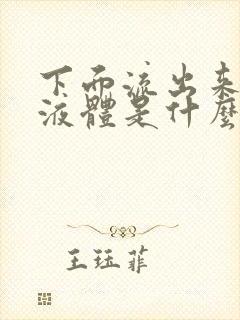 下面流出来
液體是什麼
王珏菲